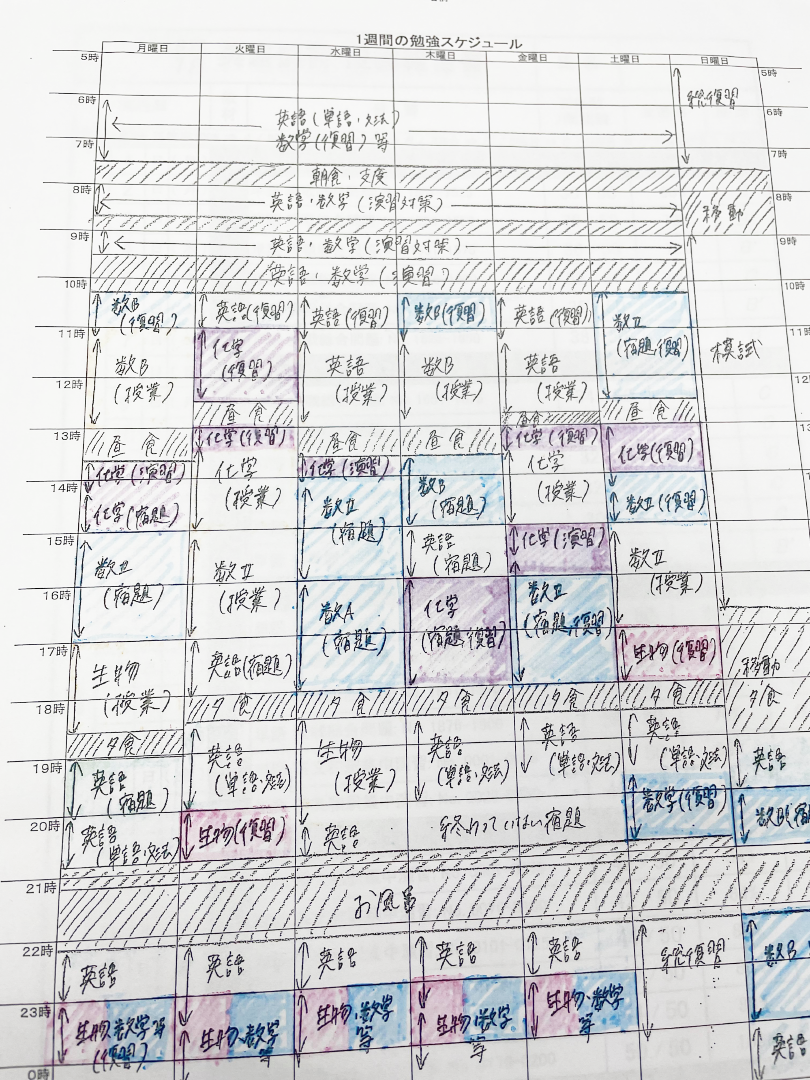 1週間の勉強スケジュール
月曜日 火曜日 水曜日 木曜日 金曜日 土曜日 日曜日
5時 5時
総復習
6時 6時
英語(単語・文法)
数学(復習)等
7時 7時
朝食・支度
8時 8時
英語・数学(演習対策)
移動
9時 9時
英語・数学(演習対策)
英語・数学(演習)
10時 10時
数B 英語(復習) 英語(復習) 数B(復習) 英語(復習) 数II
(復習) (宿題,復習)
11時 11時
化学
(復習)
数B 英語 数B 英語 模試
(授業) (授業) (授業) (授業)
12時 12
昼食 昼食 昼食
13時 13
昼食 化学(復習) 昼食 昼食 化学(復習) 化学(復習)
化学(演習) 化学 化学(演習) 化学
(授業) (授業)
14時
化学(宿題) 数II 数B 数II(復習)
(宿題) (宿題)
15時
数II 数II 英語 化学(演習) 数II
(宿題) (授業) (宿題) (授業)
16時
数A 化学 数II
(宿題) (宿題,復習) (宿題,復習)
17時
生物 英語(宿題) 生物(復習) 移動
(授業) 夕食
18時
夕食 夕食 夕食 夕食 夕食 夕食
19時
英語 英語 生物 英語 英語 英語 英語
(宿題) (単語・文法) (授業) (単語・文法) (単語・文法) (単語・文法)
数学(復習)
20時
英語 生物(復習) 英語 終わっていない宿題
(単語・文法)
21時
お風呂
22時
英語 英語 英語 英語 英語 総復習 数B
23時
生物,数学等 生物、数学 生物・数学 生物・数学 生物、数学
(復習) 等 等 等 等
英語
0時